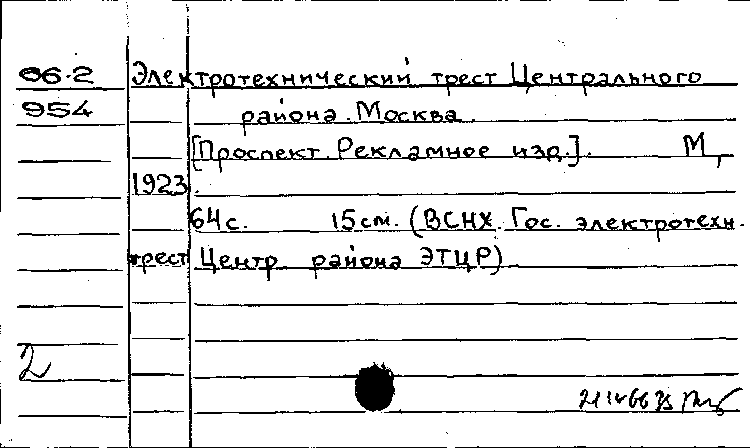 06.2 Электротехнический трест Центрального
954 района. Москва.
[Проспект. Рекламное изд.]. М,
1923.
64с. 15см. (ВСНХ. Гос. электротехн.
трест Центр. района ЭТЦР)
2